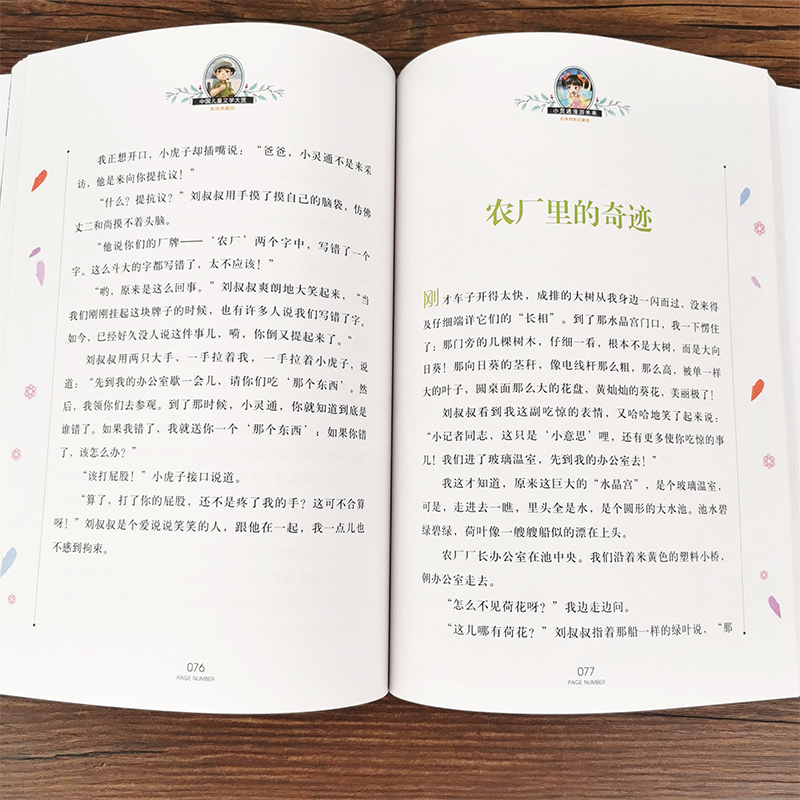 中国儿童文学大赏
我正想开口，小虎子却插嘴说：“爸爸，小灵通不是来采
访，他是来向你提抗议！”
“什么？提抗议？”刘叔叔用手摸了摸自己的脑袋，仿佛
丈二和尚摸不着头脑。
“他说你们的厂牌——‘农厂’两个字中，写错了一个
字。这么斗大的字都写错了，太不应该！”
“哟，原来是这么回事。”刘叔叔爽朗地大笑起来，“当
我们刚刚挂起这块牌子的时候，也有许多人说我们写错了字。
如今，已经好久没人说这件事儿，嗬，你倒又提起来了。”
刘叔叔用两只大手，一手拉着我，一手拉着小虎子，说
道：“先到我的办公室歇一会儿，请你们吃‘那个东西’。然
后，我领你们去参观。到了那时候，小灵通，你就知道到底是
谁错了。如果我错了，我就送你一个‘那个东西’；如果你错
了，该怎么办？”
“该打屁股！”小虎子接口说道。
“算了，打了你的屁股，还不是疼了我的手？这可不合算
呀！”刘叔叔是个爱说说笑笑的人，跟他在一起，我一点儿也
不感到拘束。
076
PAGE NUMBER
小灵通漫游未来
农厂里的奇迹
刚才车子开得太快，成排的大树从我身边一闪而过，没来得
及仔细端详它们的“长相”。到了那水晶宫门口，我一下愣住
了：那门旁的几棵树木，仔细一看，根本不是大树，而是大向
日葵！那向日葵的茎秆，像电线杆那么粗，那么高，被单一样
大的叶子，圆桌面那么大的花盘，黄灿灿的葵花，美丽极了！
刘叔叔看到我这副吃惊的表情，又哈哈地笑了起来说：
“小记者同志，这只是‘小意思’哩，还有更多使你吃惊的事
儿！我们进了玻璃温室，先到我的办公室去！”
我这才知道，原来这巨大的“水晶宫”，是个玻璃温室，
可是，走进去一瞧，里头全是水，是个圆形的大水池。池水碧
绿碧绿，荷叶像一艘艘船似的漂在上头。
农厂厂长办公室在池中央。我们沿着米黄色的塑料小桥，
朝办公室走去。
“怎么不见荷花呀？”我边走边问。
“这儿哪有荷花？”刘叔叔指着那船一样的绿叶说，“那
077
PAGE NUMBER